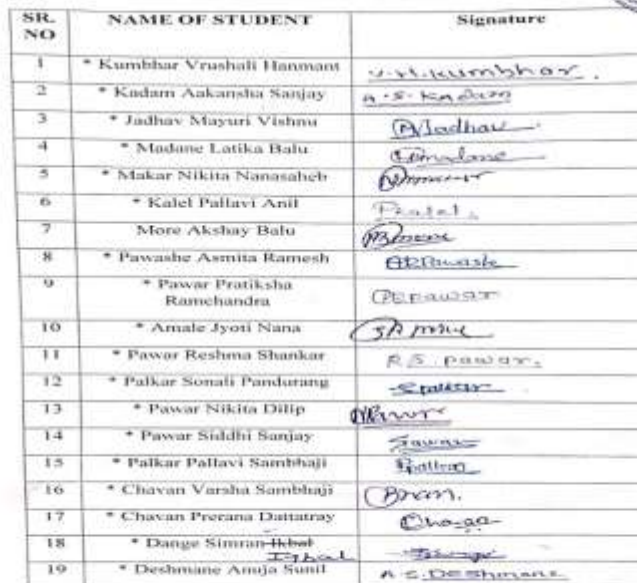 SR. NO NAME OF STUDENT Signature
1 * Kumbhar Vrushali Hanmant V.H.Kumbhar.
2 * Kadam Aakansha Sanjay A.S.Kadam
3 * Jadhav Mayuri Vishnu Jadhav
4 * Madane Latika Balu
5 * Makar Nikita Nanasaheb
6 * Kalel Pallavi Anil
7 More Akshay Balu
8 * Pawashe Asmita Ramesh ARPawashe
9 * Pawar Pratiksha
Ramchandra PRPawar
10 * Amale Jyoti Nana
11 * Pawar Reshma Shankar R.S. Pawar.
12 * Palkar Sonali Pandurang
13 * Pawar Nikita Dilip
14 * Pawar Siddhi Sanjay
15 * Palkar Pallavi Sambhaji
16 * Chavan Varsha Sambhaji
17 * Chavan Prerana Dattatray
18 * Dange Simran Ikbal
Iqbal
19 * Deshmane Anuja Sunil A.S.Deshmane